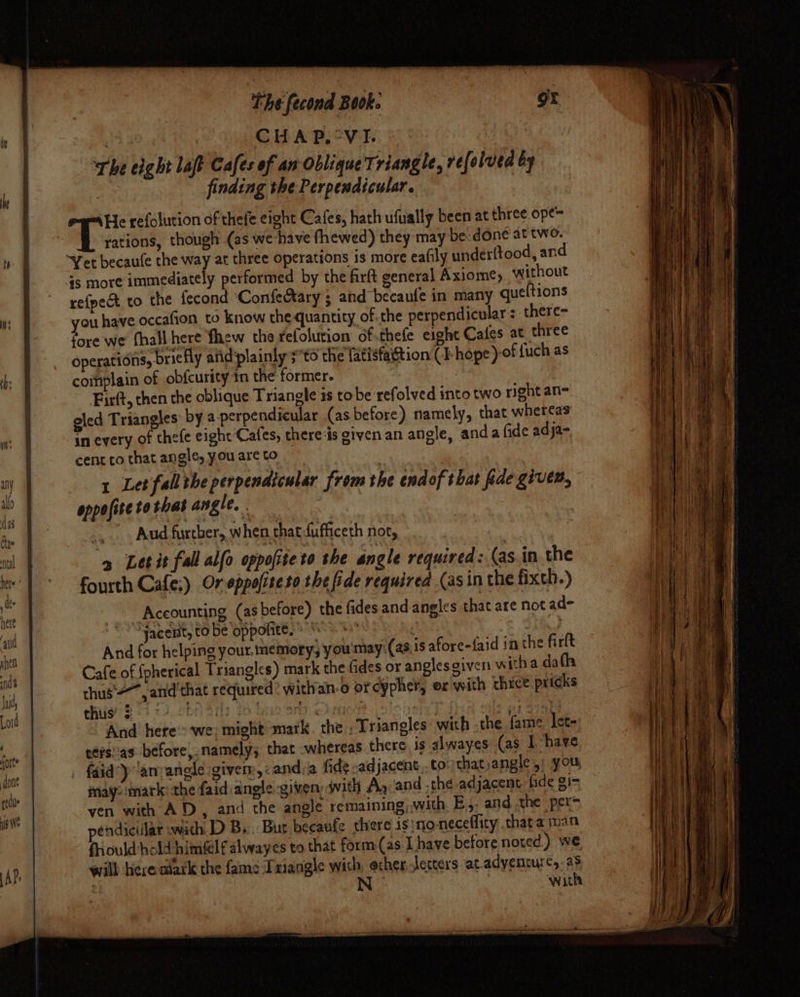 The ſecond Book. 91
CHAP. VI.
The eight laſt Caſes of an Oblique Triangle, reſolved by
finding the Perpendicular.
THe reſolution of theſe eight Caſes, hath uſually been at three ope-
rations, though (as we have ſhewed) they may be done at two.
Yet becauſe the way at three operations is more eaſily underſtood, and
is more immediately performed by the firſt general Axiome, without
reſpect to the ſecond Conſectary; and becauſe in many queſtions
you have occaſion to know the quantity of the perpendicular: there-
fore we ſhall here ſhew the reſolution of theſe eight Caſes at three
operations, briefly and plainly; to the ſatisfaction (I hope) of ſuch as
complain of obſcurity in the former.
Firſt, then the oblique Triangle is to be reſolved into two right an-
gled Triangles by a perpendicular (as before) namely, that whereas
in every of theſe eight Caſes, there is given an angle, and a ſide adja-
cent to that angle, you are to
1 Let fall the perpendicular from the end of that ſide given,
oppoſite to that angle.
Aud further, when that ſufficeth not,
2 Let it fall alſo oppoſite to the angle required: (as in the
fourth Caſe:) Or oppoſite to the ſide required (as in the ſixth.)
Accounting (as before) the ſides and angles that are not ad-
jacent, to be oppoſite.
And for helping your memory, you may (as is afore-ſaid in the firſt
Caſe of ſpherical Triangles) mark the ſides or angles given with a daſh
thus , and that required with an o or cypher, or with three pricks
thus
And here we might mark the Triangles with the ſame let-
ters as before, namely, that whereas there is alwayes (as I have
ſaid) an angle given, and a ſide adjacent to that angle, you
may mark the ſaid angle given with A, and the adjacent ſide gi-
ven with A D, and the angle remaining with E, and the per-
pendicular with D B. But becauſe there is no neceſſity that a man
ſhould hold himſelf alwayes to that form (as I have before noted) we
will here mark the ſame Triangle with other letters at adventure, as
N with